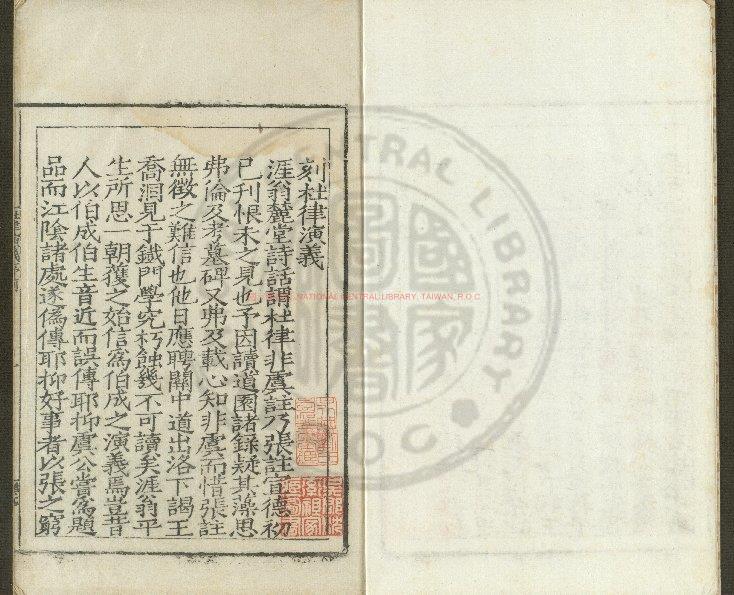 刻杜律演義
涯翁麓堂詩話謂杜律非虞註乃張註宣德初
已刊恨未之見也予因讀道園諸錄疑其澡思
弗倫及考墓碑又弗及載心知非虞而惜張註
無徵之難信也他日應聘關中道出洛下謁王
喬洞見于鐵門學究朽蝕幾不可讀矣涯翁平
生所思一朝獲之始信為伯成之演義焉豈昔
人以伯成伯生音近而誤傳耶抑虞公嘗為題
品而江陰諸處遂偽傳耶抑好事者以張之窮
NATIONAL CENTRAL LIBRARY, TAIWAN, R.O.C.
CENTRAL LIBRARY
R O C